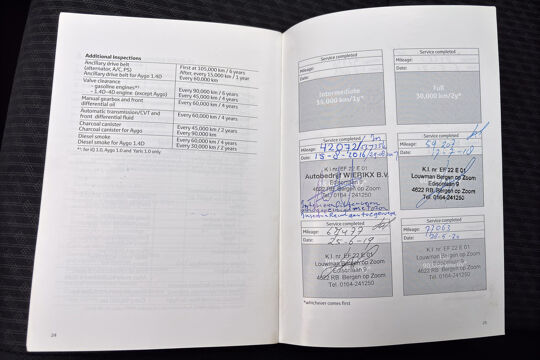 Additional Inspections
Ancillary drive belt
(alternator, A/C, PS) First at 105,000 km / 6 years
After, every 15,000 km / 1 year
Ancillary drive belt for Aygo 1.4D Every 60,000 km
Valve clearance
- gasoline engines*¹ Every 90,000 km / 6 years
- 1.4D-4D engine (except Aygo) Every 45,000 km / 4 years
Manual gearbox and front Every 60,000 km / 4 years
differential oil
Automatic transmission/CVT and Every 60,000 km / 4 years
front differential fluid
Charcoal canister Every 45,000 km / 2 years
Charcoal canister for Aygo Every 90,000 km
Diesel smoke Every 60,000 km / 4 years
Diesel smoke for Aygo 1.4D Every 30,000 km / 2 years
*¹: for iQ 1.0, Aygo 1.0 and Yaris 1.0 only.
24
Service completed
Mileage:
Date:
Intermediate
15,000 km/1y*
Service completed
Mileage:
Date:
Full
30,000 km/2y*
Service completed
42072
Date: 15-8-2016
K.I.nr. EF 22 E 01
Autobedrijf WIERIKX B.V.
Edisonlaan 9
4622 RB Bergen op Zoom
Service completed
Mileage: 59207
Date:
K.I. nr. EF 22 E 01
Louwman Bergen op Zoom
Edisonlaan 9
4622 RB Bergen op Zoom
Tel. 0164-241250
Service completed
Mileage: 67477
Date: 25-6-19
K.I. nr. EF 22 E 01
Louwman Bergen op Zoom
Edisonlaan 9
4622 RB Bergen op Zoom
Tel. 0164-241250
Service completed
Mileage: 77063
Date:
K.I. nr. EF 22 E 01
Louwman Bergen op Zoom
Edisonlaan 9
4622 RB Bergen op Zoom
Tel. 0164-241250
*whichever comes first
25